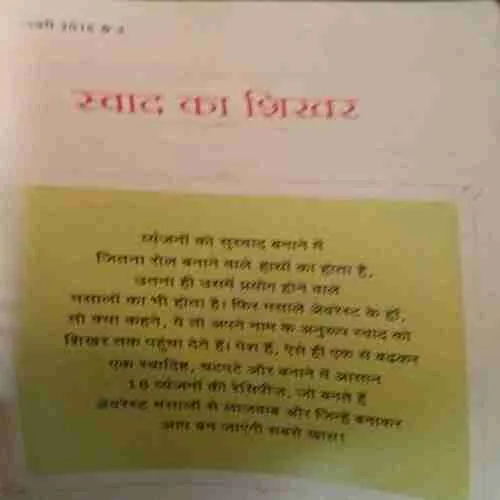 2016
स्वाद का शिखर
व्यंजनों को सुस्वाद बनाने में
जितना रोल बनाने वाले हाथों का होता है,
उतना ही उसमें प्रयोग होने वाले
मसालों का भी होता है। फिर मसाले एवरेस्ट के हों,
तो क्या कहने, ये तो अपने नाम के अनुरूप स्वाद को
शिखर तक पहुंचा देते हैं। पेश हैं, ऐसे ही एक से बढ़कर
एक स्वादिष्ट, चटपटे और बनाने में आसान
16 व्यंजनों की रेसिपीज, जो बनते हैं
एवरेस्ट मसालों से लाजवाब और जिन्हें बनाकर
आप बन जाएंगी सबसे खास।